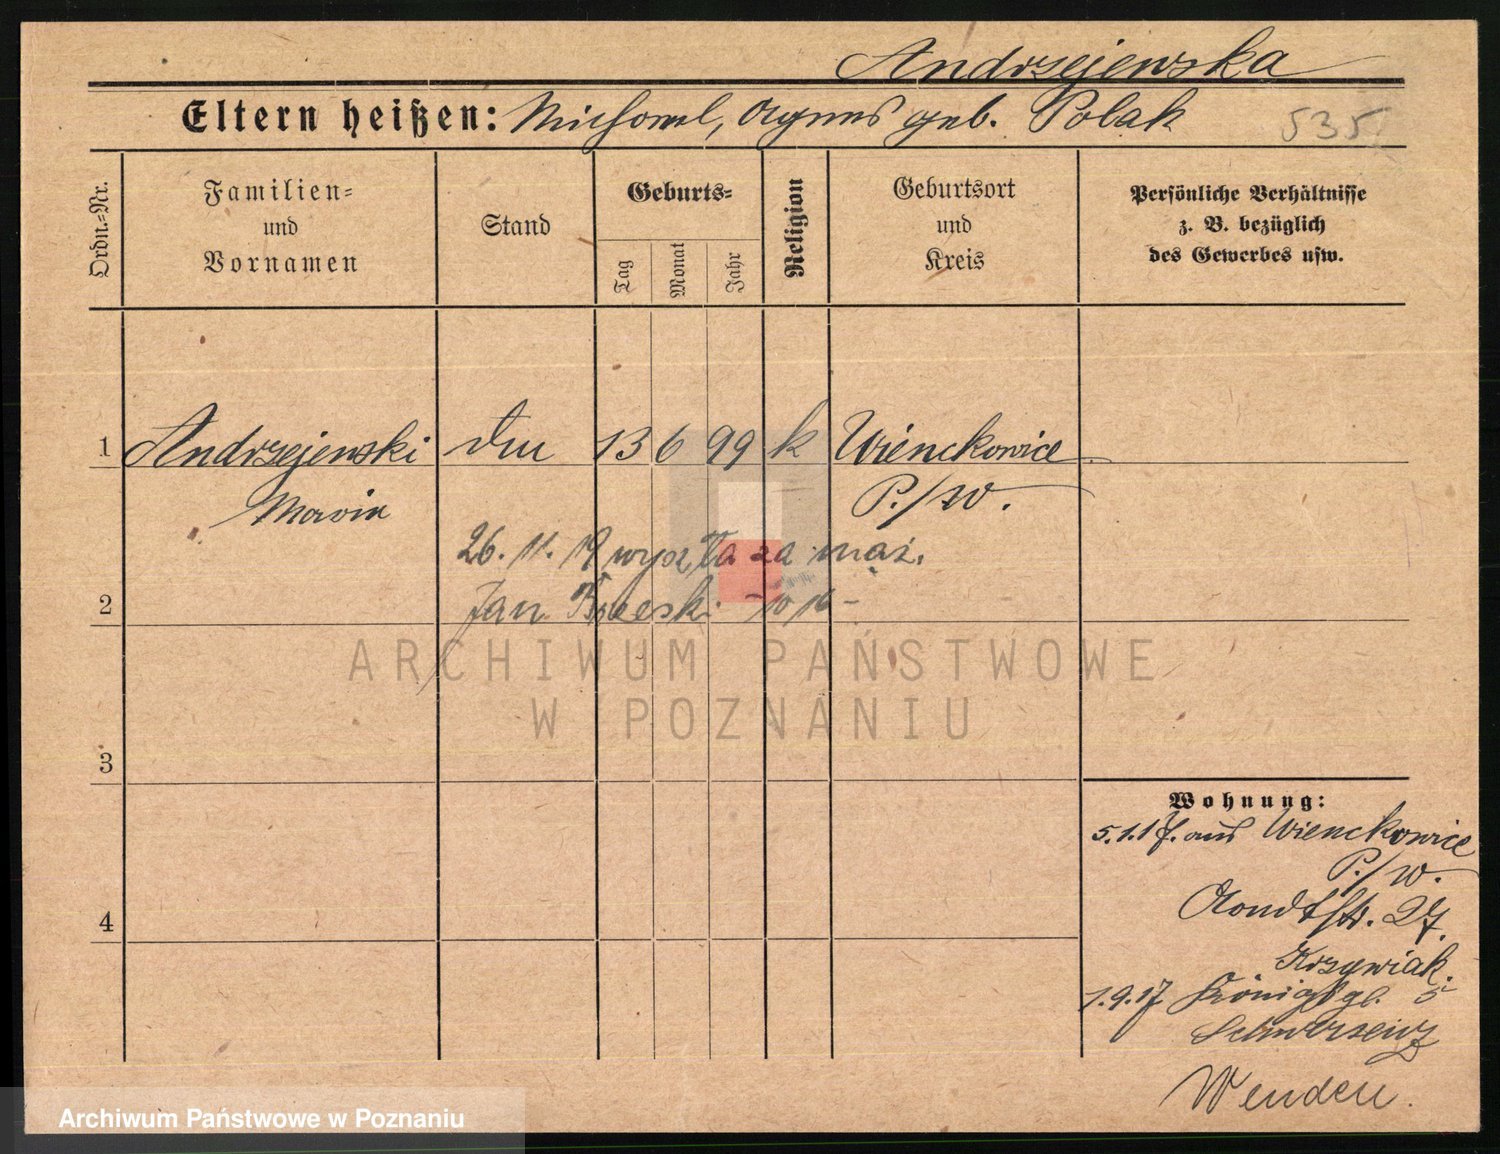 Andrzejewska
Eltern heißen: Michael, Agnes geb. Polak 535
Ordn.=Nr.
Familien=
und
Vornamen
Stand
Geburts=
Tag
Monat
Jahr
Religion
Geburtsort
und
Kreis
Persönliche Verhältnisse
z. B. bezüglich
des Gewerbes usw.
1 Andrzejewski 13 6 99 k Wienckowice
Maria P./W.
26. 11. 19 wyszła za mąż.
2 Jan
ARCHIWUM PAŃSTWOWE
W POZNANIU
3
Wohnung:
5.1.17. aus Wienckowice
P./W.
4 27.
Krzywiak.
1.9.17 Königspl. 5
Schwersenz
Wenden.
Archiwum Państwowe w Poznaniu